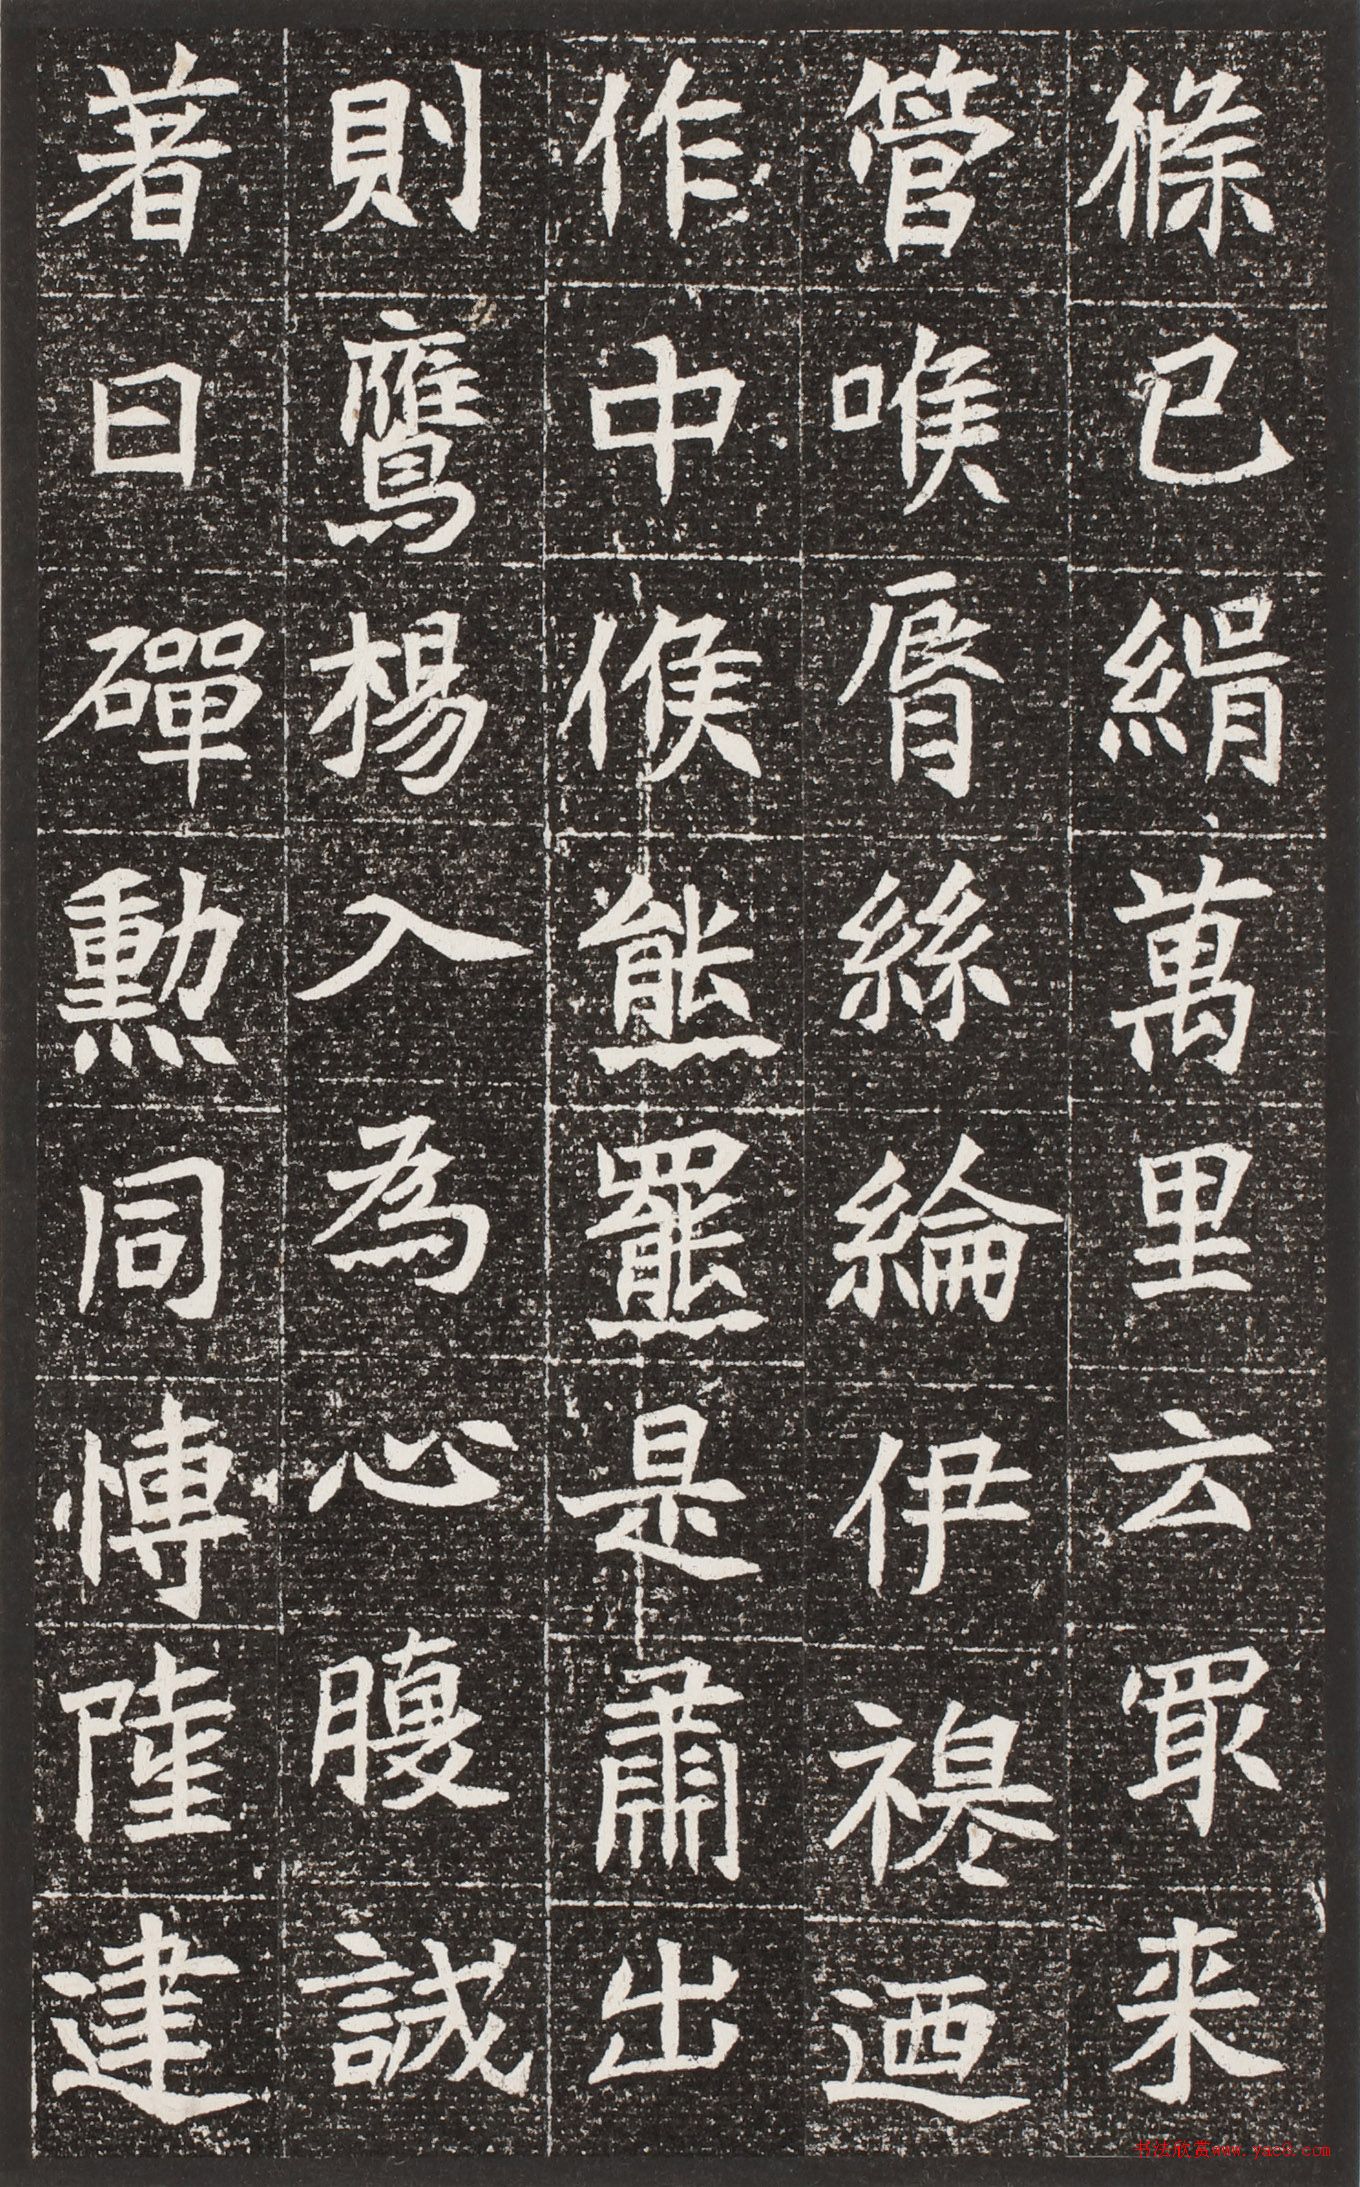 條已緝萬里云冣来
管喉脣絲綸伊禔迺
作中候熊羆是肅出
則鷹楊入為心腹誠
著日磾勳同博陸建
书法欣赏www.yac8.com